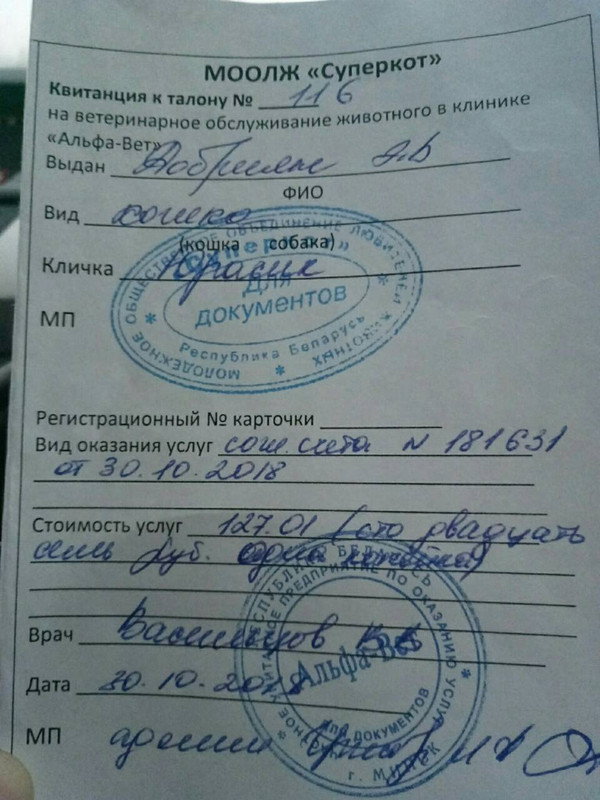 МООЛЖ «Суперкот»
Квитанция к талону № 116
на ветеринарное обслуживание животного в клинике
«Альфа-Вет»
Выдан А.В
ФИО
Вид кошка
(кошка собака)
Кличка Красик
МП
МОЛОДЕЖНОЕ ОБЩЕСТВЕННОЕ ОБЪЕДИНЕНИЕ ЛЮБИТЕЛЕЙ ЖИВОТНЫХ
«Суперкот»
Для
документов
Республика Беларусь
Регистрационный № карточки
Вид оказания услуг сог. счета N 181631
от 30.10.2018
Стоимость услуг 127.01 (сто двадцать
семь руб. одна копейка)
Врач Васильцов
Дата 30.10.2018
РЕСПУБЛИКА БЕЛАРУСЬ
УНИТАРНОЕ ПРЕДПРИЯТИЕ ПО ОКАЗАНИЮ УСЛУГ
Альфа-Вет
ДЛЯ ДОКУМЕНТОВ
г. МИНСК
МП админ